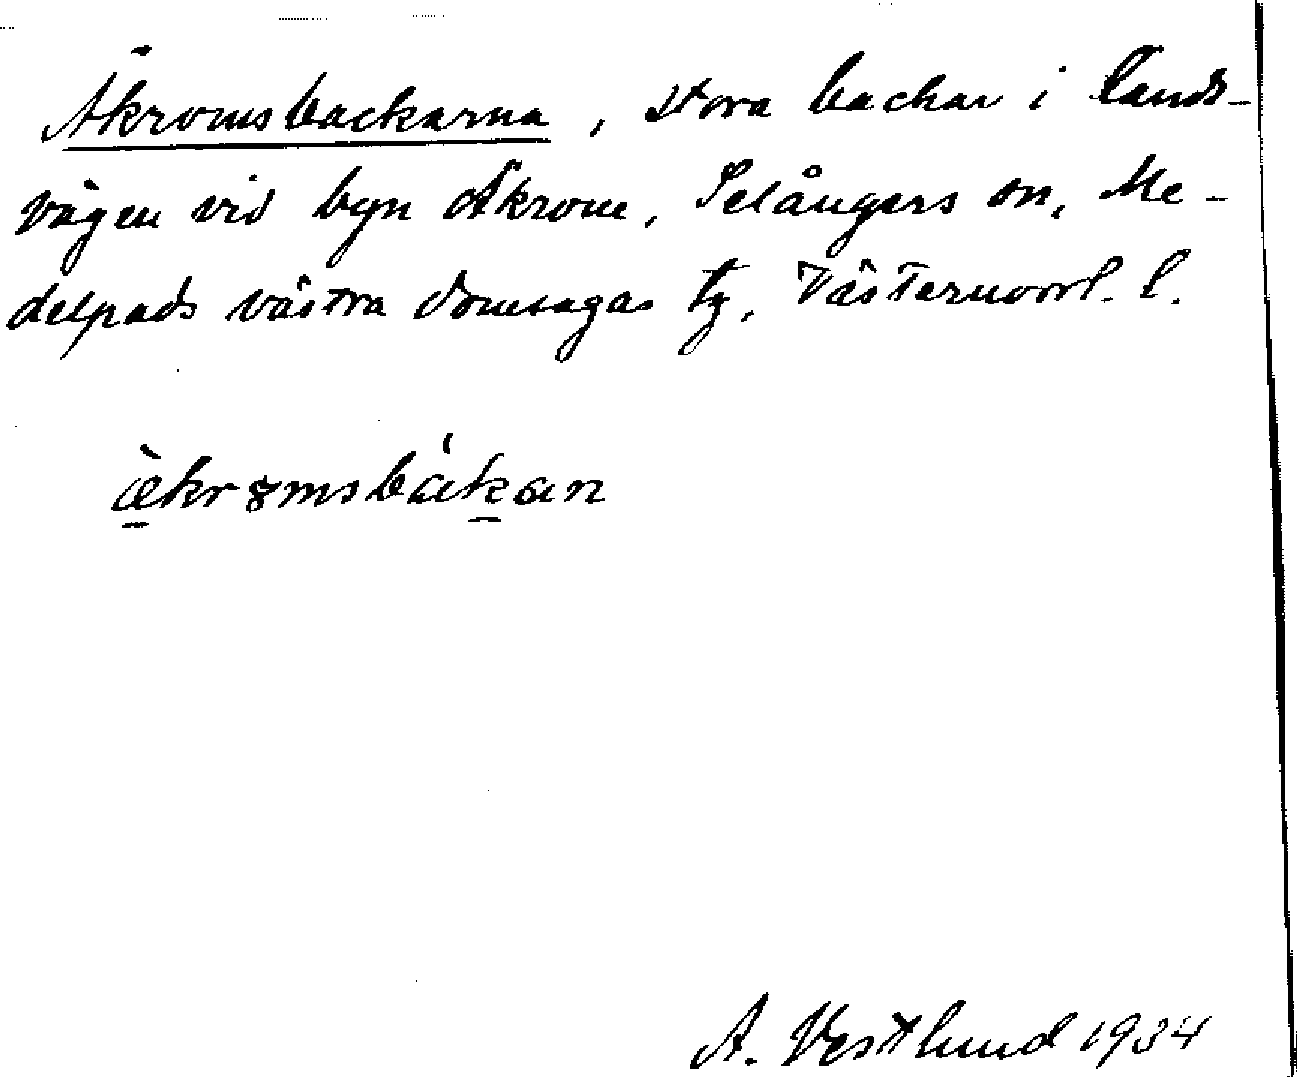 Äkromsbackarna, stora backar i lands-
vägen vid byn Äkrom, Selångers sn, Me-
delpads västra domsagas tg, Västernorrl. l.
æ̀krꝏmsbákan
A. Vestlund 1934